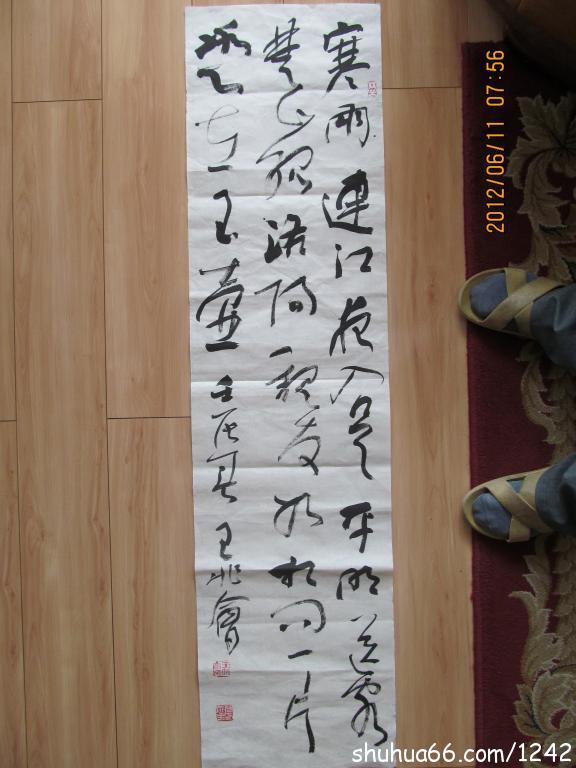 寒雨連江夜入吳平明送客
楚山孤洛陽親友如相問一片
冰心在玉壺 壬辰夏 王兆會
2012/06/11 07:56
shuhua66.com/1242